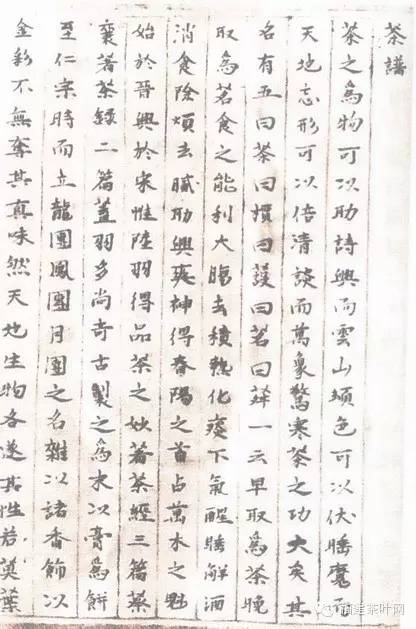 茶譜
茶之爲物可以助詩興而雲山頓色可以伏睡魔而
天地忘形可以倍清談而萬象驚寒茶之功大矣其
名有五曰茶曰檟曰蔎曰茗曰荈一云早取爲茶晚
取爲茗食之能利大腸去積熱化痰下氣醒睡解酒
消食除煩去膩助興爽神得春陽之首占萬木之魁
始於晉興於宋惟陸羽得品茶之妙著茶經三篇蔡
襄著茶録二篇蓋羽多尚奇古製之爲末以膏爲餅
至仁宗時而立龍團鳳團月團之名雜以諸香飾以
金彩不無奪其真味然天地生物各遂其性若莫葉
福建茶叶网